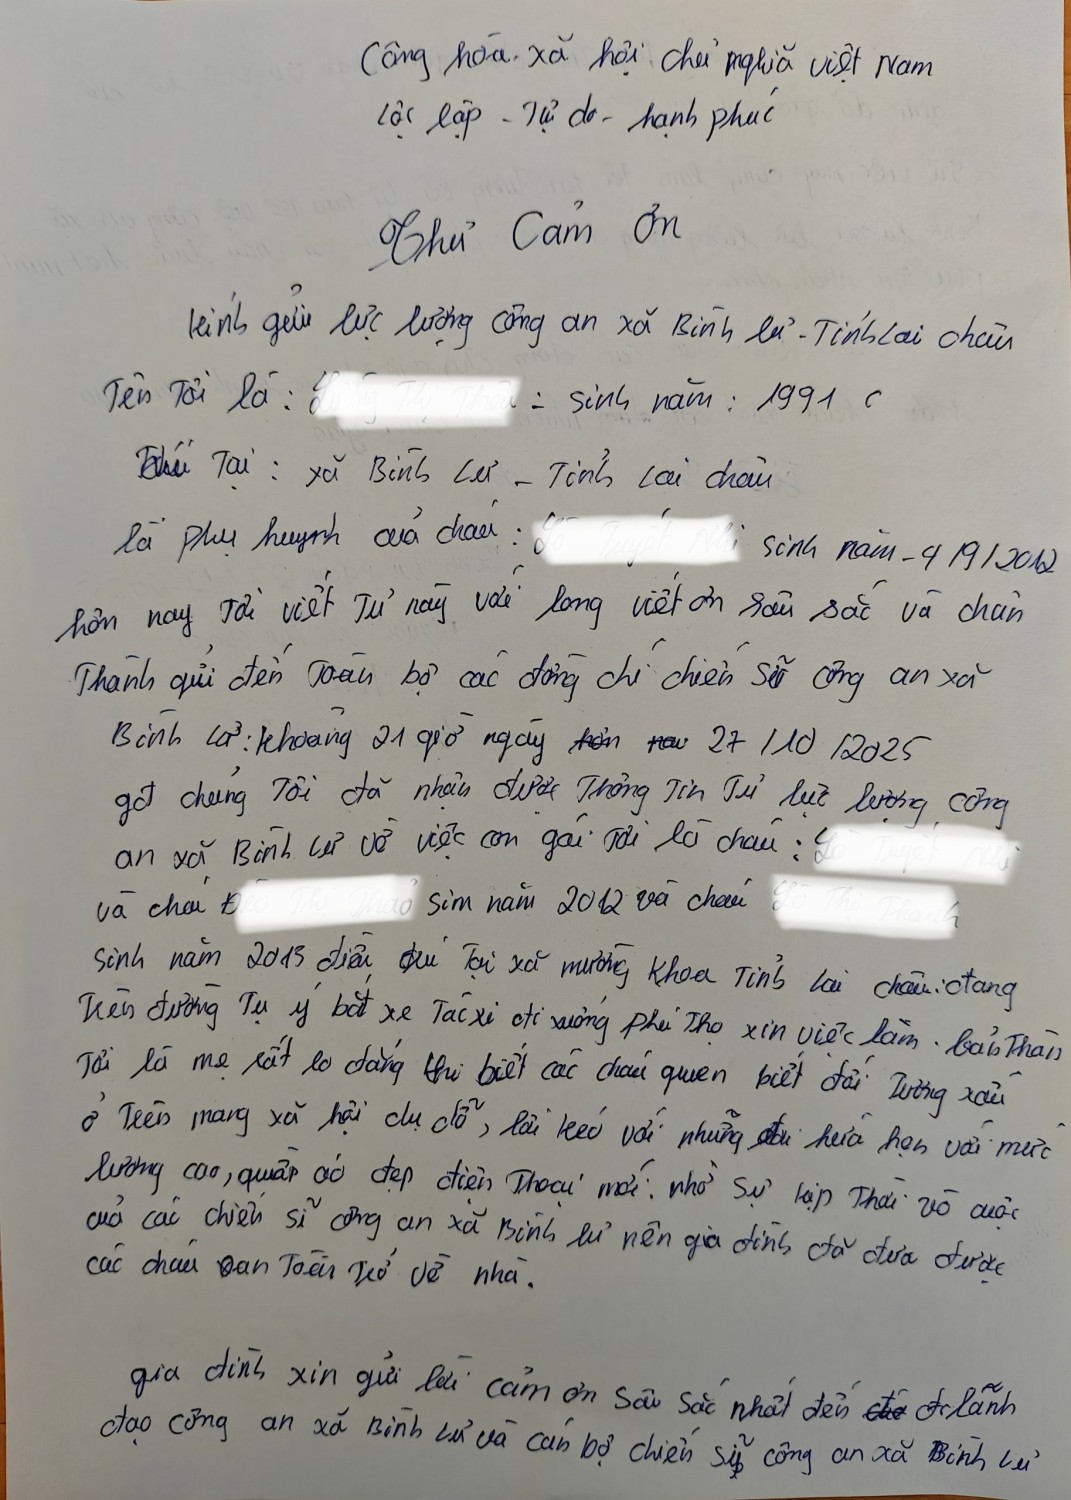 Công hòa xã hội chủ nghĩã việt Nam
Lộc lập - Tự do - hạnh phúc
Thư Cảm Ơn
kính gửi lực lượng công an xã Bình lư - Tỉnh Lai châu
Tên Tôi là : sinh năm : 1991
Tại : xã Bình Lư - Tỉnh Lai châu
là phụ huynh cuả cháu : sinh năm - 4/9/2012
hôn nay Tôi viết Tư này với long viết ơn sâu sắc và chân
Thành gửi đến Toàn bộ các đông chí chiến sĩ công an xã
Bình Lư : khoảng 21 giờ ngày 27/10/2025
chúng Tôi đã nhận được Thông Tin Từ lực lượng công
an xã Bình Lư về việc con gái Tôi là cháu :
và cháu sim năm 2012 và cháu
sinh năm 2013 điều Tại xã mường khoa Tỉnh Lai châu : đang
trên đường Tự ý bắt xe Tắc xi đi xuống phú Thọ xin việc làm . bản Thân
Tôi là mẹ rất lo đắng khi biết các cháu quen biết đối Tượng xấu
ở Trên mang xã hội dụ dỗ, lôi kéo với những hứa hẹn với mức
lương cao, quần áo đẹp điện Thoại mới. nhờ sự kịp Thời vô cuộc
cuả các chiến sĩ công an xã Bình lư nên gia đình đã đưa được
các cháu an Toàn Trở về nhà.
gia đình xin gửi lời cảm ơn sâu sắc nhất đến đ/c lãnh
đạo công an xã Bình Lư và cán bộ chiến sĩ công an xã Bình Lư